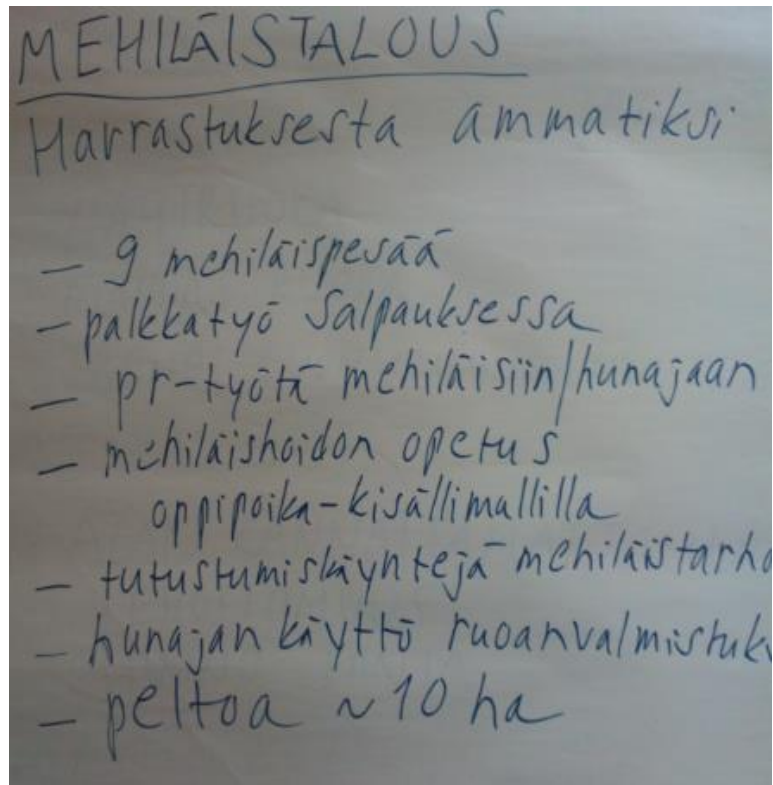 MEHILÄISTALOUS
Harrastuksesta ammatiksi
- 9 mehiläispesää
- palkkatyö Salpauksessa
- pr-työtä mehiläisiin/hunajaan
- mehiläishoidon opetus
oppipoika-kisällimallilla
- tutustumiskäyntejä mehiläistarho
- hunajan käyttö ruoanvalmistuks
- peltoa ~10 ha